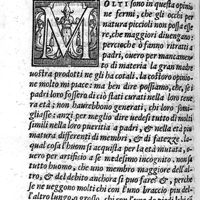 MOLTI sono in questa opinio
ne fermi, che gli occhi per
natura piccioli non possa esse
re, che maggiori diuengano:
percioche ò fanno ritratti a
padri, ouero per mancamen
to di materia la gran madre
nostra prodotti ne gli ha cotali. la costoro opinio-
ne molto mi piace: ma ben dire possiamo, che, se i
padri loro fossero di ciò stati curati nella loro tene
ra età, non haurebbono generati, che loro somi-
gliasse: anzi per meglio dire uedesi tutto dì molti
simili nella loro pueritia a padri, & nella età piu
matura differenti di membri, & di fattezze. per il
qual cosa l'huom si acquista per la età mutata, o-
uero per artificio a se medesimo incognito. non sa
tutto huomo, che uno membro maggiore dell'al-
tro, & del debito anchora si può fare? &, perche
se ne ueggono molti chi con l'uno braccio piu del-
l'altro lungo, o grosso, chi con l'uno de piedi